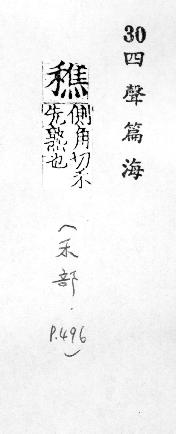 30四聲篇海
穛側角切禾
先熟也
(禾部.
P.496)